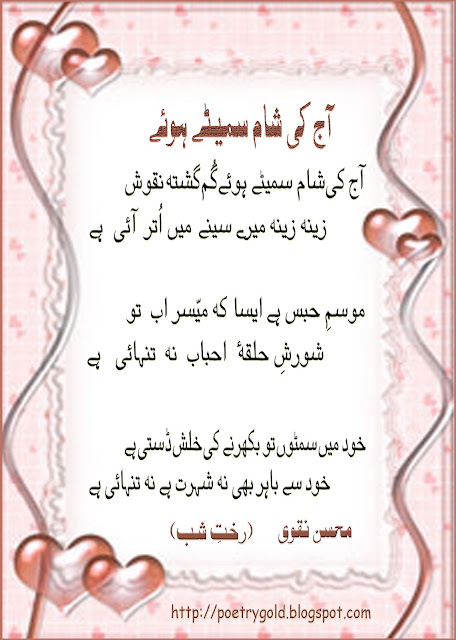 آج کی شام سمیٹے ہوئے
آج کی شام سمیٹے ہوئے گُم گشتہ نقوش
زینہ زینہ میرے سینے میں اُتر آئی ہے
موسمِ حبس ہے ایسا کہ میّسر اب تو
شورشِ حلقۂ احباب نہ تنہائی ہے
خود میں سمٹوں تو بکھرنے کی خلش ڈستی ہے
خود سے باہر بھی نہ شہرت ہے نہ تنہائی ہے
محسن نقوی (رختِ شب)
http://poetrygold.blogspot.com